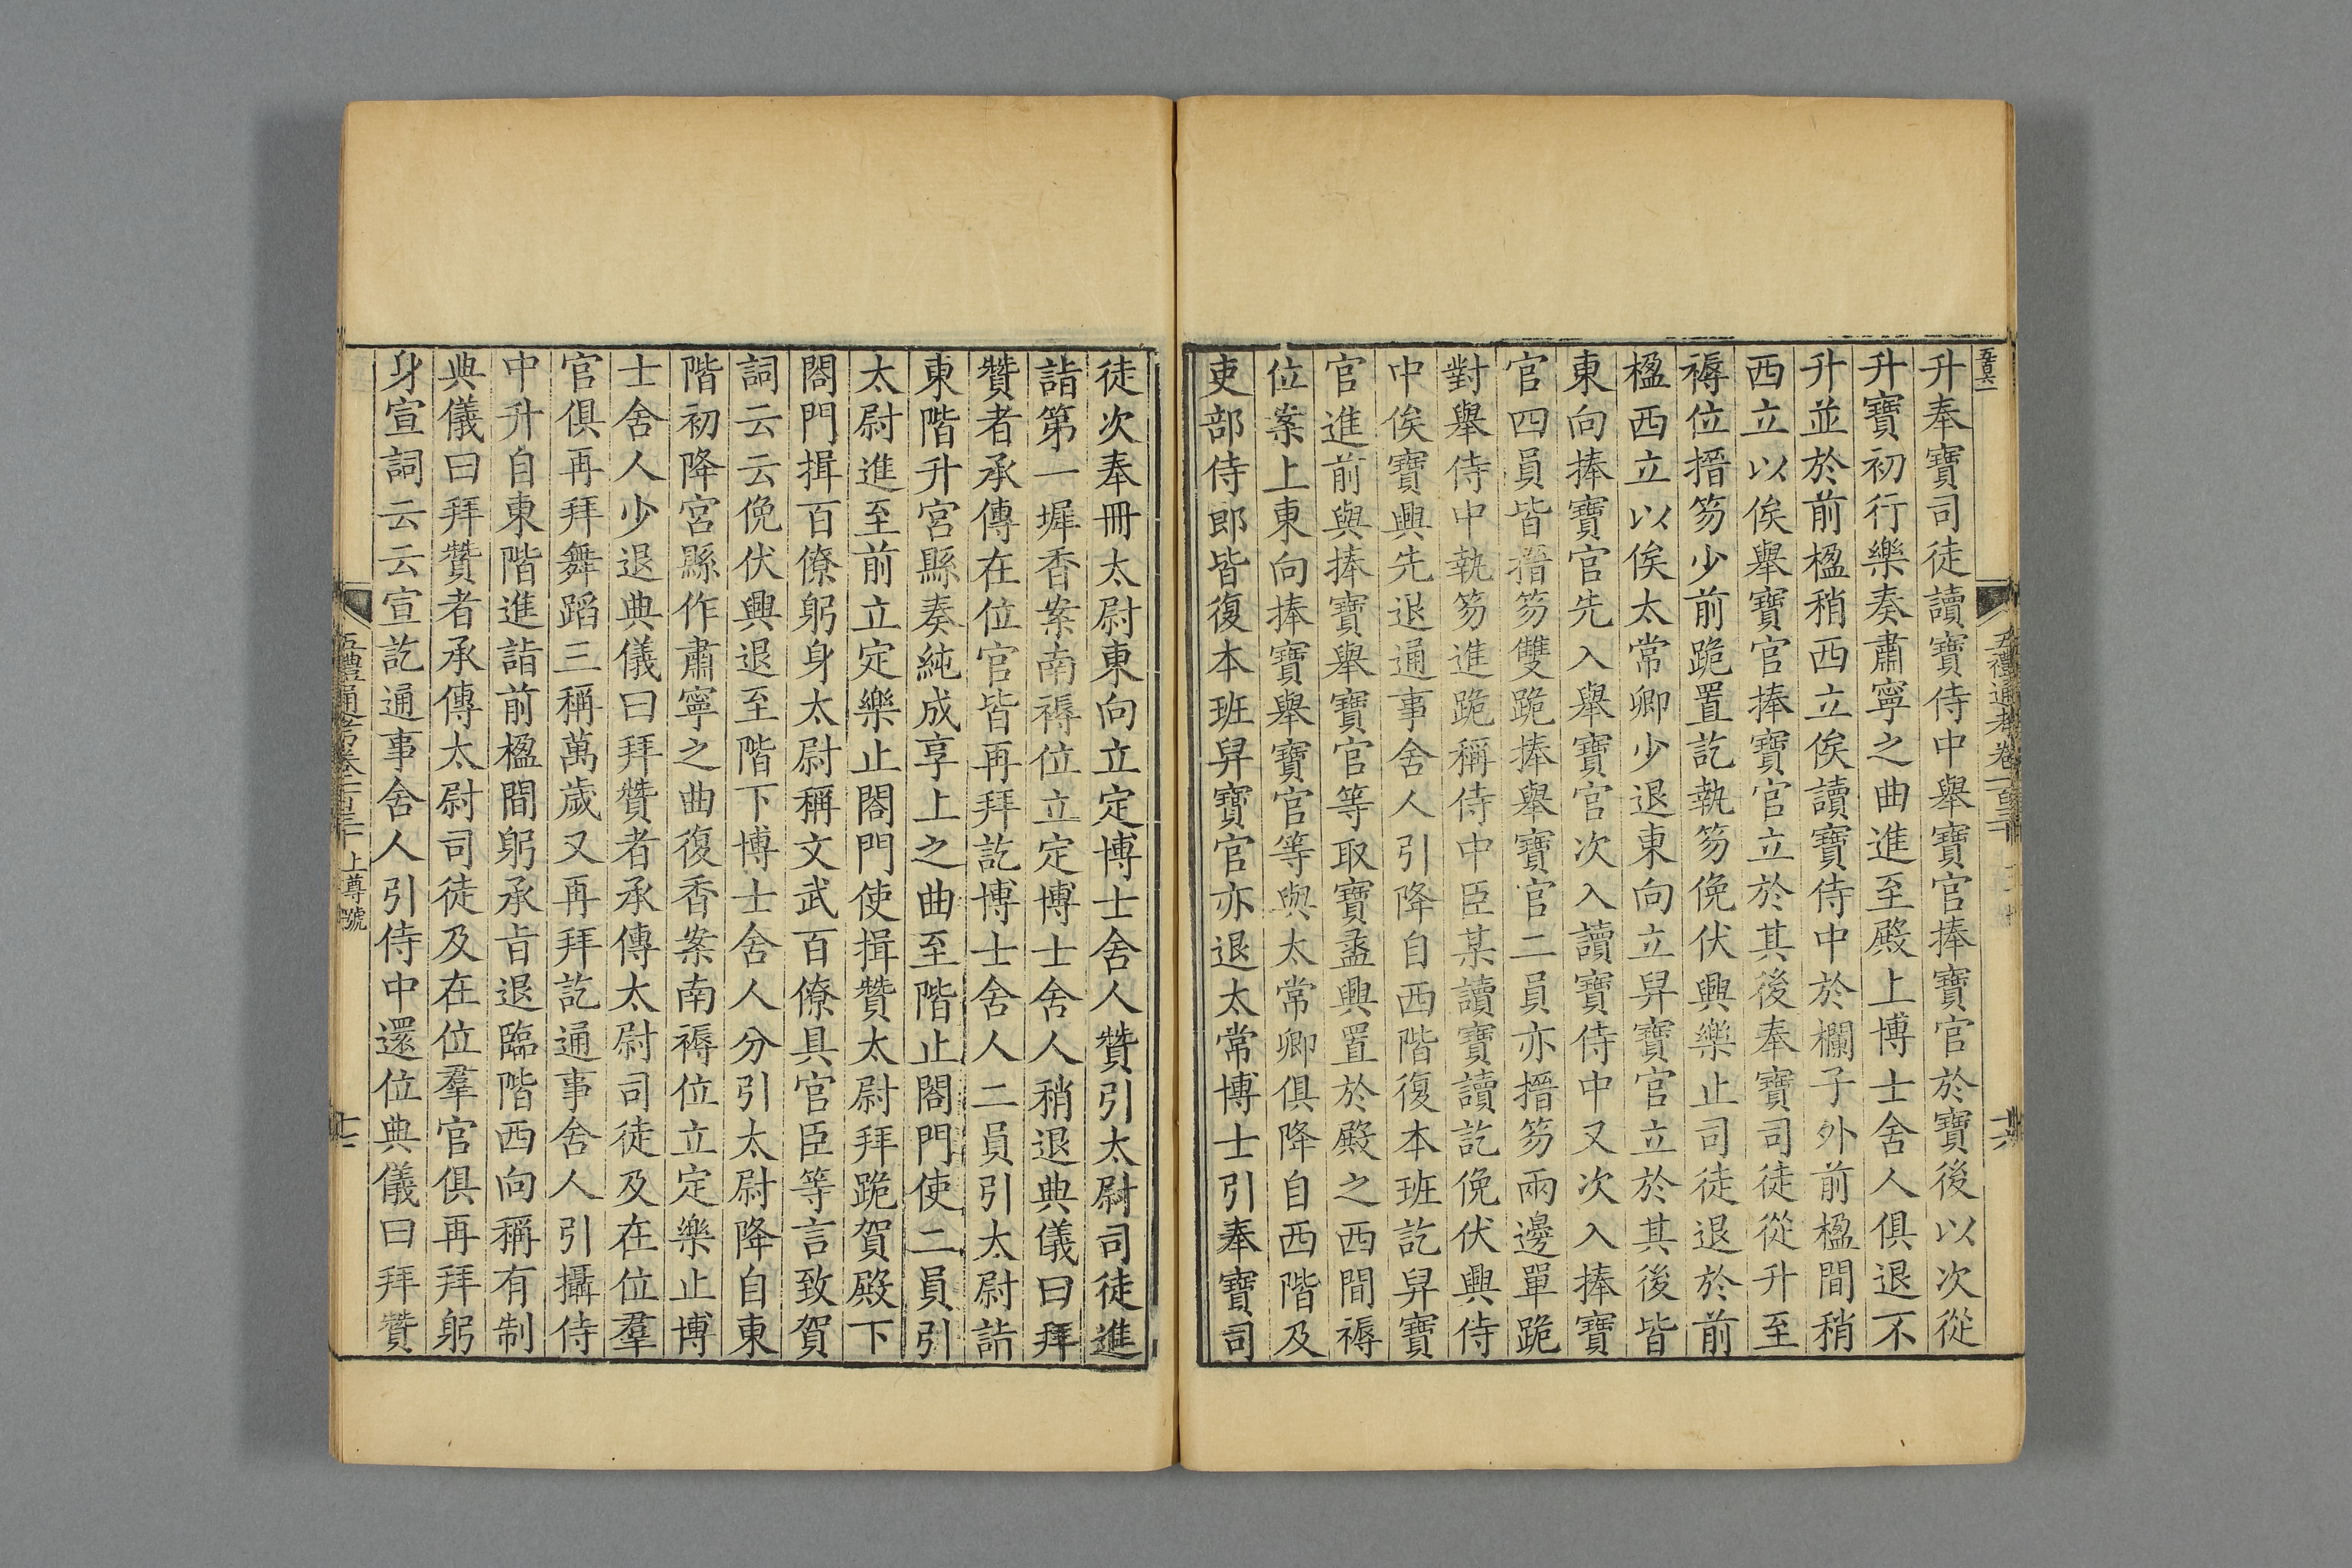 升奉寶司徒讀寶侍中舉寶官捧寶官於寶後以次從
升寶初行樂奏肅寧之曲進至殿上博士舍人俱退不
升並於前楹稍西立俟讀寶侍中於欄子外前楹間稍
西立以俟舉寶官捧寶官立於其後奉寶司徒從升至
褥位搢笏少前跪置訖執笏俛伏興樂止司徒退於前
楹西立以俟太常卿少退東向立舁寶官立於其後皆
東向捧寶官先入舉寶官次入讀寶侍中又次入捧寶
官四員皆搢笏雙跪捧舉寶官二員亦搢笏兩邊單跪
對舉侍中執笏進跪稱侍中臣某讀寶讀訖俛伏興侍
中俟寶興先退通事舍人引降自西階復本班訖舁寶
官進前與捧寶舉寶官等取寶盝興置於殿之西間褥
位案上東向捧寶舉寶官等與太常卿俱降自西階及
吏部侍郎皆復本班舁寶官亦退太常博士引奉寶司
徒次奉冊太尉東向立定博士舍人贊引太尉司徒進
詣第一墀香案南褥位立定博士舍人稍退典儀曰拜
贊者承傳在位官皆再拜訖博士舍人二員引太尉詣
東階升宮縣奏純成享上之曲至階止閤門使二員引
太尉進至前立定樂止閤門使揖贊太尉拜跪賀殿下
閤門揖百僚躬身太尉稱文武百僚具官臣等言致賀
詞云云俛伏興退至階下博士舍人分引太尉降自東
階初降宮縣作肅寧之曲復香案南褥位立定樂止博
士舍人少退典儀曰拜贊者承傳太尉司徒及在位羣
官俱再拜舞蹈三稱萬歲又再拜訖通事舍人引攝侍
中升自東階進詣前楹間躬承旨退臨階西向稱有制
典儀曰拜贊者承傳太尉司徒及在位羣官俱再拜躬
身宣詞云云宣訖通事舍人引侍中還位典儀曰拜贊
五禮通考卷一百三十 上尊號